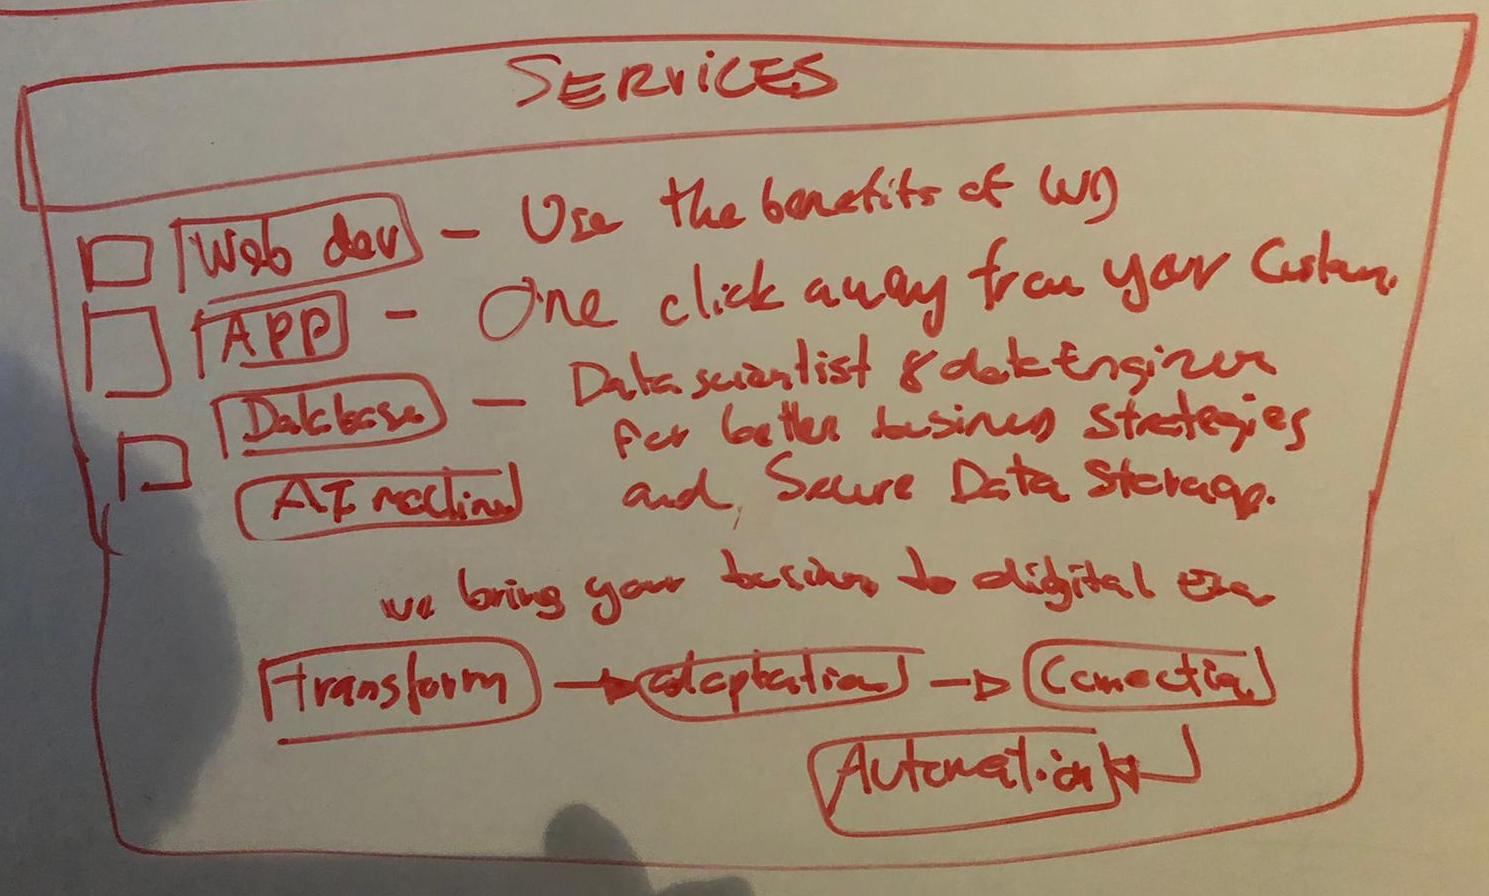 SERViCES
Web dev - Use the benefits of WD
APP - One click away from your Custom.
Database - Data scientist & data Engineer
for better business strategies
AI and, Secure Data Storage.
we bring your business to digital era
transform → adaptation → Connection
Automation